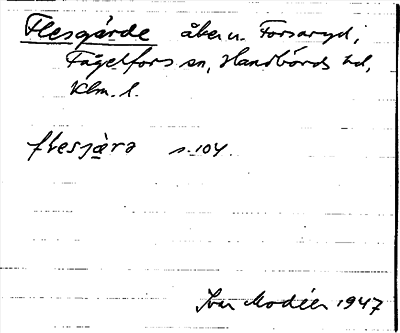 Flesgärde åker u. Forsaryd,
Fågelfors sn, Handbörds hd,
Klm. l.
flesjæra s. 104.
Ivar Modéer 1947